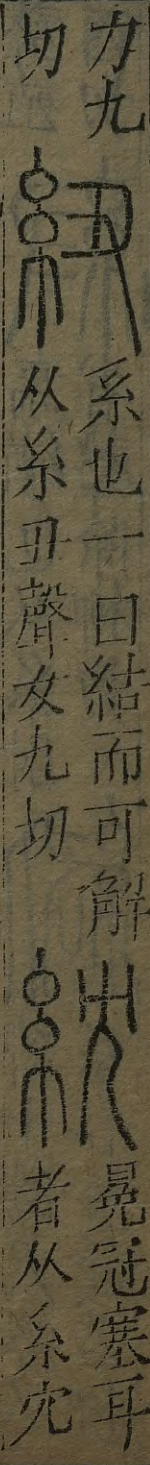 力九
切
紐
系也一曰結而可解
从糸丑聲女九切
紞
冕冠塞耳
者从糸冘